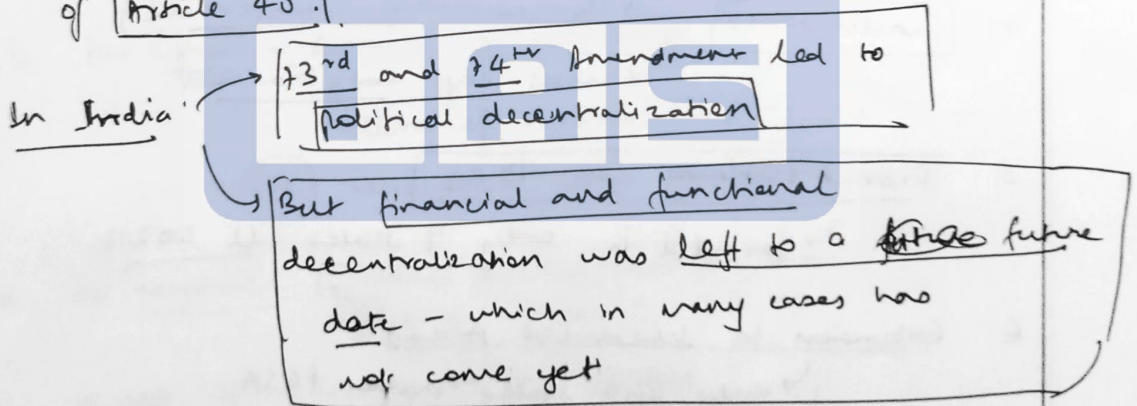 of Article 40.
IAS
73rd and 74th Amendment led to
In India
political decentralization
But financial and functional
decentralization was left to a future
date - which in many cases has
not come yet